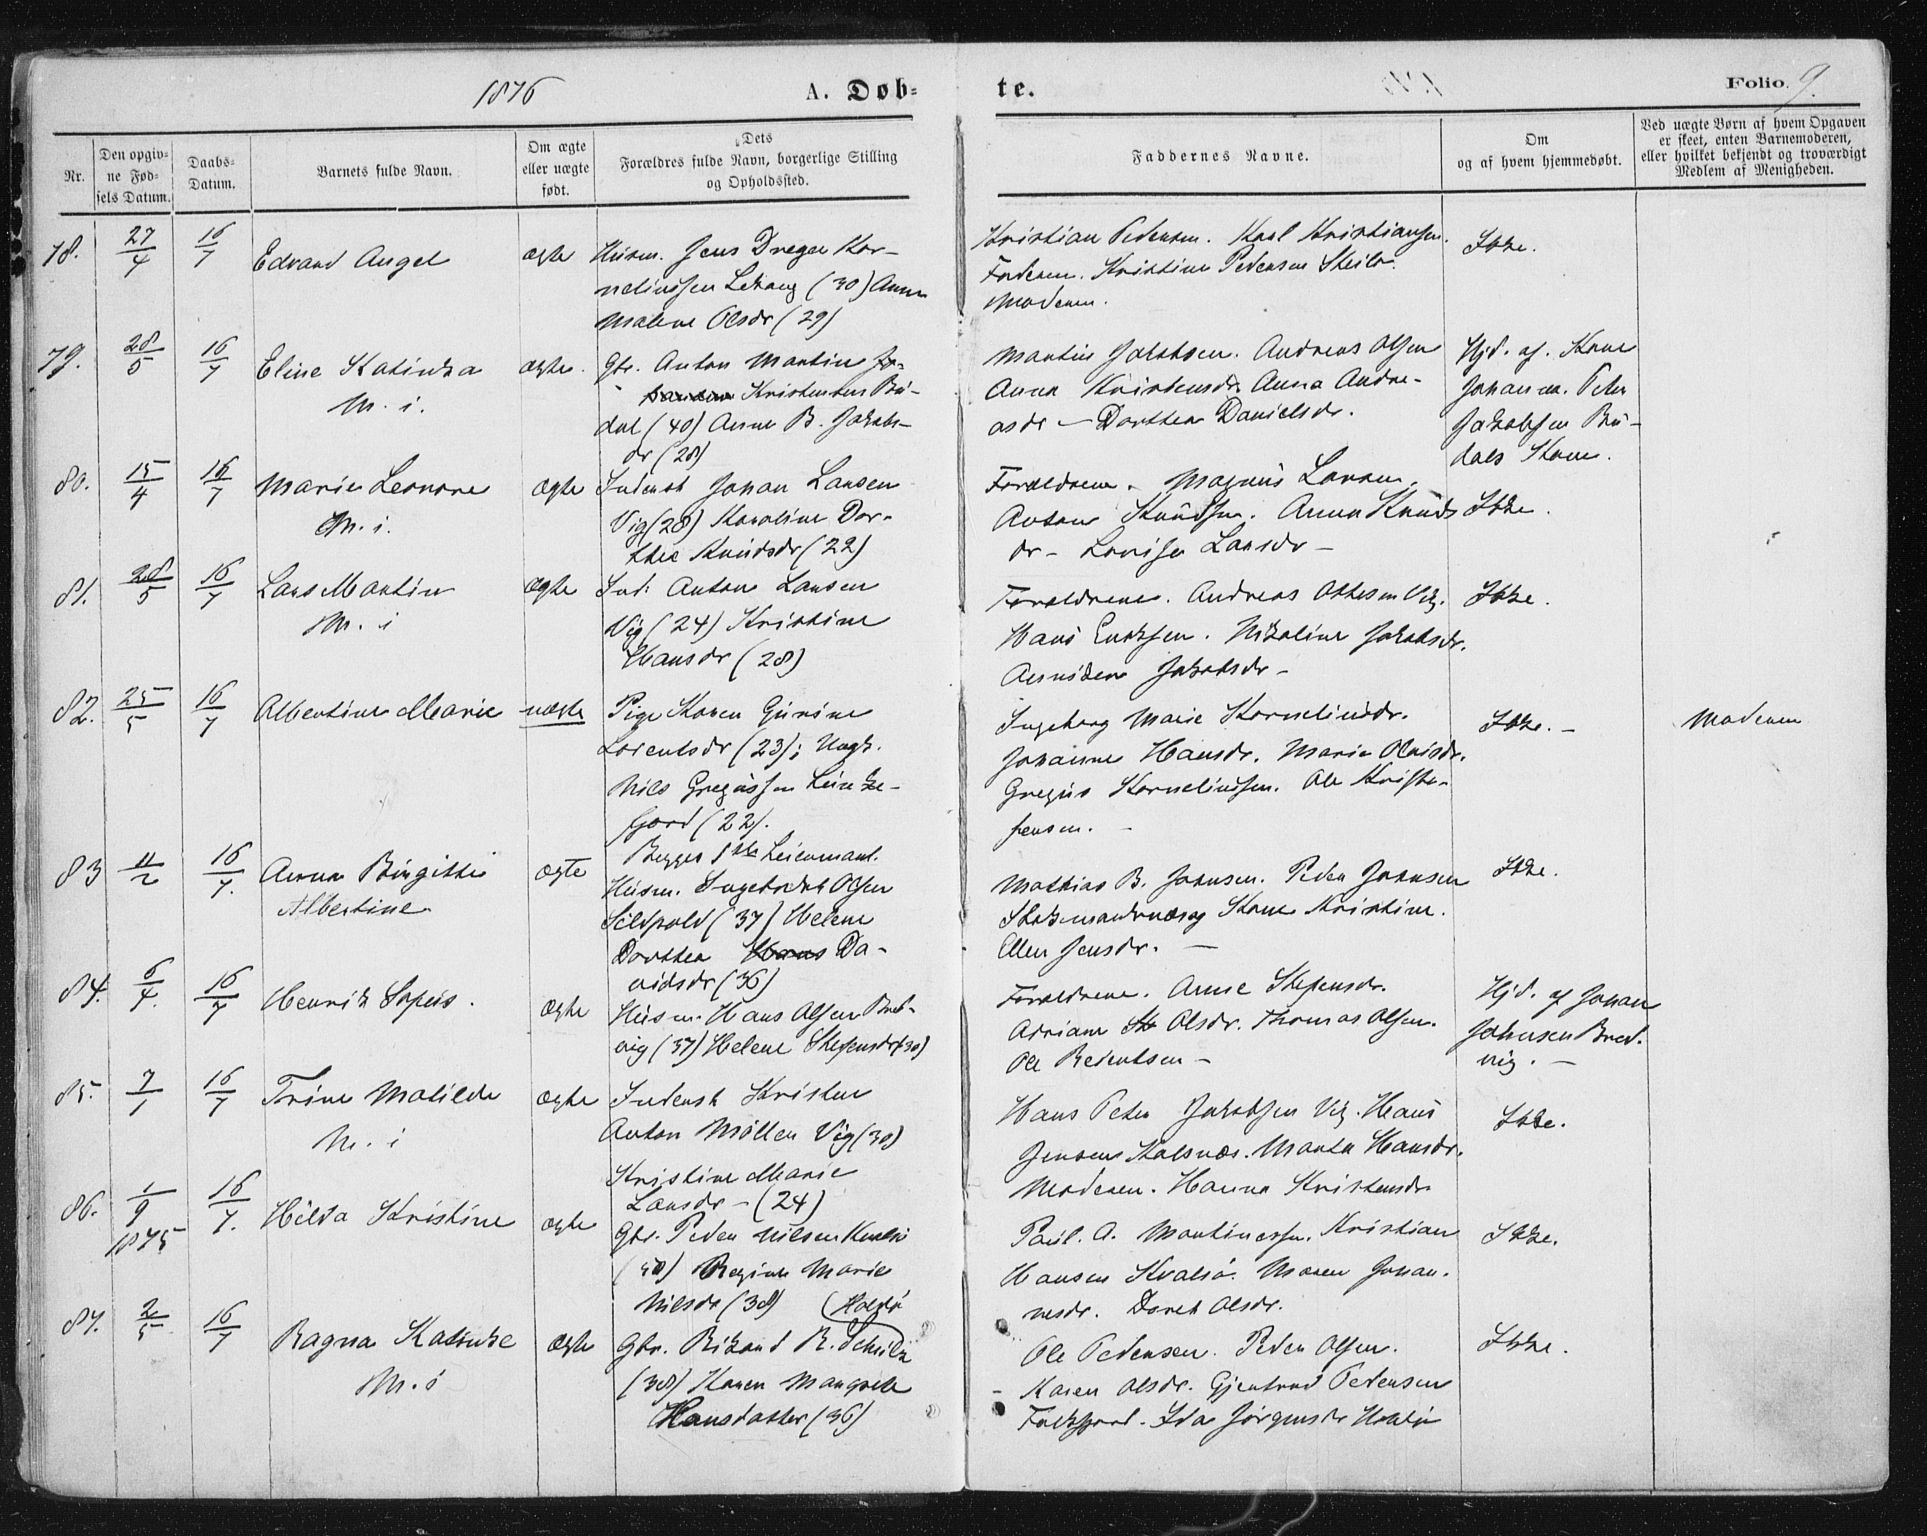 1876 A. Døb-
te.
Folio 9.
Nr.
Den opgiv-
ne Fød-
sels Datum.
Daabs-
Datum.
Barnets fulde Navn.
Om ægte
eller uægte
født.
Dets
Forældres fulde Navn, borgerlige Stilling
og Opholdssted.
Faddernes Navne.
Om
og af hvem hjemmedøbt.
Ved uægte Børn af hvem Opgaven
er skeet, enten Barnemoderen,
eller hvilket bekjendt og troværdigt
Medlem af Menigheden.
78. 27/4 16/7 Edvard Angel ægte Husm. Jens Dreyer Kor-
neliussen Lekang (30) Anne
Malene Olsdr (29)
Kristian Pedersen. Karl Kristiansen.
Faderen. Kristine Pedersen
Moderen.
Ikke.
79. 28/5 16/7 Eline Katinka ægte. Gbr. Anton Martin
M. i.
Kristensen Bu-
dal (40) Anne B. Jakobs-
dr (28)
Martin Jakobsen. Andreas Olsen
Anna Kristensdr Anna Andre-
asdr - Dorthea Danielsdr.
Hjd. af. Kone
Johanna. Peter
Jakobsen Bu-
dals Kone.
80. 15/4 16/7 Marie Leonore ægte Inderst Johan Larsen
M. i.
Vig (28) Karoline Dor-
thea Knudsdr (22)
Forældrene. Magnus Larsen.
Anton Knudsen. Anna Knuds
dr - Lovise Larsdr -
Ikke.
81. 28/5 16/7 Lars Martin ægte Ind. Anton Larsen
M. i
Vig (24) Kristine
Hansdr (28)
Forældrene. Andreas Ottesen Vig.
Hans Eriksen. Nikoline Jakobsdr.
Jakobsdr -
Ikke.
82. 25/5 16/7 Albertine Marie uægte Pige Karen Gurine
Lorentsdr (23); Ungk.
Nils Gregussen
(22).
Begges 1ste Leiermaal.
Ingeborg Marie Korneliusdr.
Johanne Hansdr. Marie Olaisdr.
Gregus Korneliussen. Ole Kristo-
fersen. -
Ikke. -
Moderen
83 11/2 16/7. Anna Birgitte ægte Husm. Ingebrigt Olsen
Albertine
Sildpold (37) Helene
Dorthea Hans Da-
vidsdr (36)
Mathias B. Johnsen. Peder Johnsen
Kone Kristine.
Ellen Jensdr. -
Ikke.
84. 6/4. 16/7 Henrik Sofus. ægte Husm. Hans Olsen Bred-
vig (37) Helene Stefensdr (30)
Forældrene. Anne Stefensdr.
Adriane St Olsdr. Thomas Olsen.
Ole Berentsen -
Hjd. af Johan
Johnsen Bred-
vig. -
85. 7/1 16/7 Trine Matilde ægte Inderst Kristen
M. i
Anton Möller Vig (30)
Kristine Marie
Larsdr - (24)
Hans Peter Jakobsen Vig. Hans
Jensen Kalsnæs. Marta Hansdr.
Moderen. Hanna Kristensdr
Ikke.
86. 1/9 1875 16/7. Hilda Kristine ægte Gbr. Peder Nilsen Kvalsø
(40) Regine Marie
Nilsdr (38)
Paul. A. Martinessen. Kristian
Hansen Kvalsø. Maren Johan-
nesdr. Doret Olsdr.
Ikke.
87. 2/5 16/7 Ragna Katinke ægte Gbr. Rikard R. Schulz
M. i
(Holdø
(38) Karen Margrete
Hansdatter (36)
Ole Pedersen. Peder Olsen.
- Karen Olsdr. Gjertrud Pedersen
Ida Jørgensdr Holdø
Ikke.